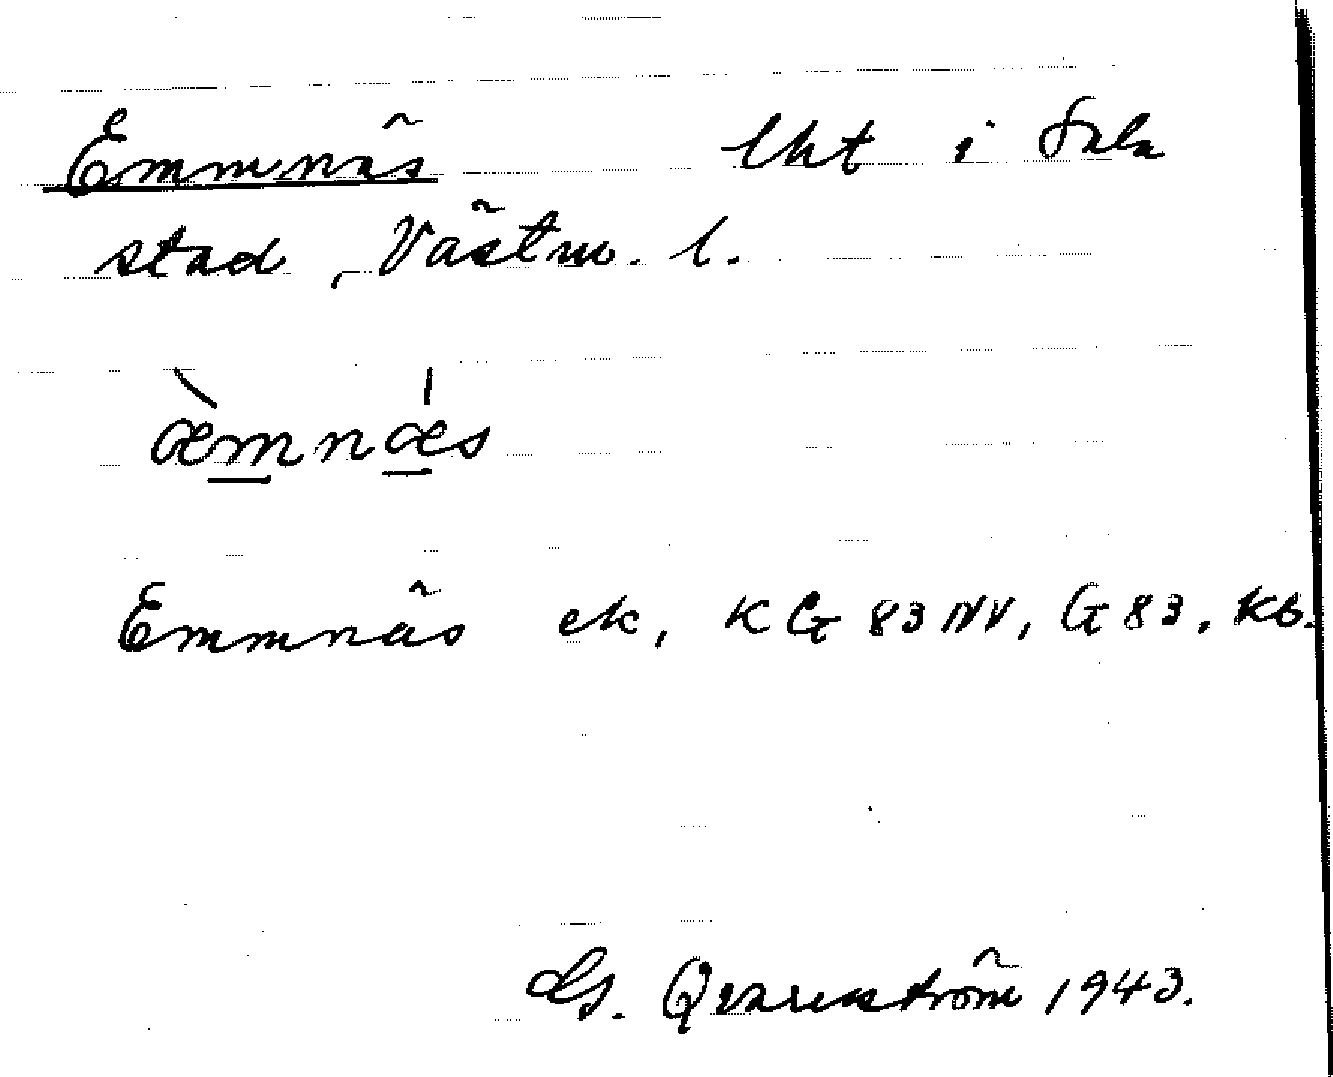 Emmnäs lht i Sala
stad, Västm. l.
æ̀mnǽs
Emmnäs ek, KG 83 NV, G 83, Kb.
Qvarnström 1943.